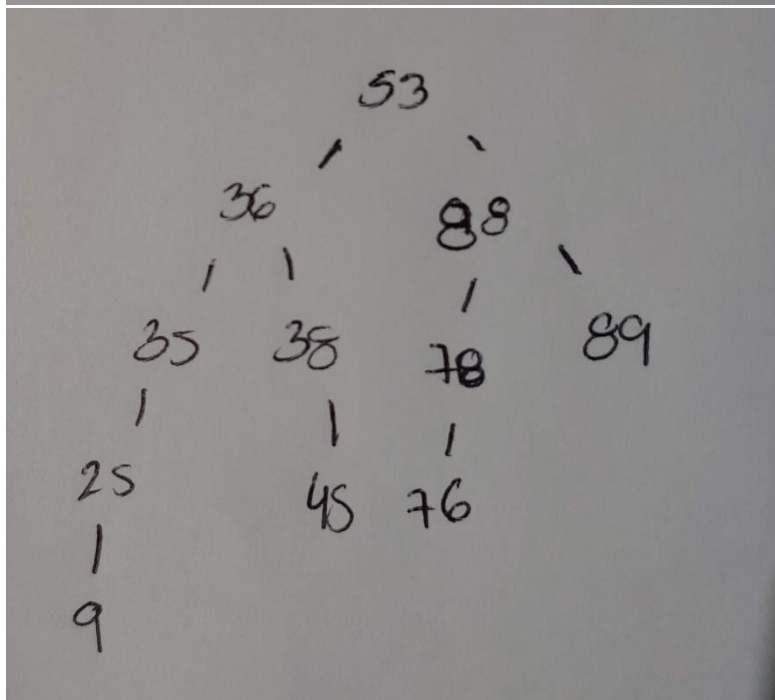 53
36 88
35 38 78 89
25 45 76
9